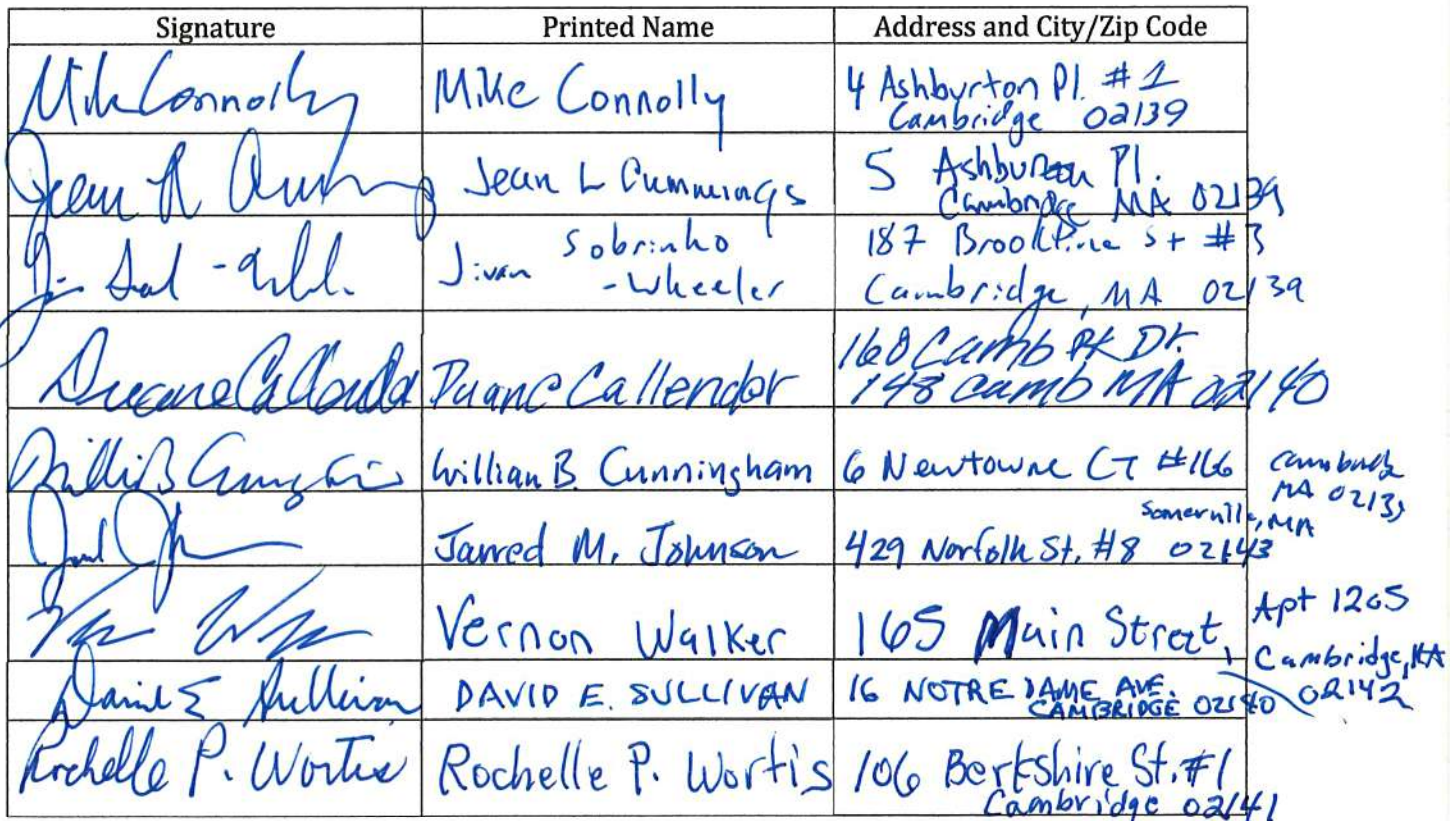 Signature Printed Name Address and City/Zip Code
Mike Connolly Mike Connolly 4 Ashburton Pl. #1
Cambridge 02139
Jean L Cummings 5 Ashburton Pl.
Cambridge MA 02139
Jivan Sobrinho
-Wheeler
187 Brookline St #3
Cambridge, MA 02139
Duane Callender Duane Callender 160 Camb Pk Dr.
148 Camb MA 02140
William B. Cunningham 6 Newtowne CT #166 Cambridge
MA 02139
Jarred M. Johnson 429 Norfolk St. #8 02143
Somerville, MA
Vernon Walker 165 Main Street, Apt 1205
Cambridge, MA
02142
David E Sullivan DAVID E. SULLIVAN 16 NOTRE DAME AVE.
CAMBRIDGE 02140
Rochelle P. Wortis Rochelle P. Wortis 106 Berkshire St. #1
Cambridge 02141